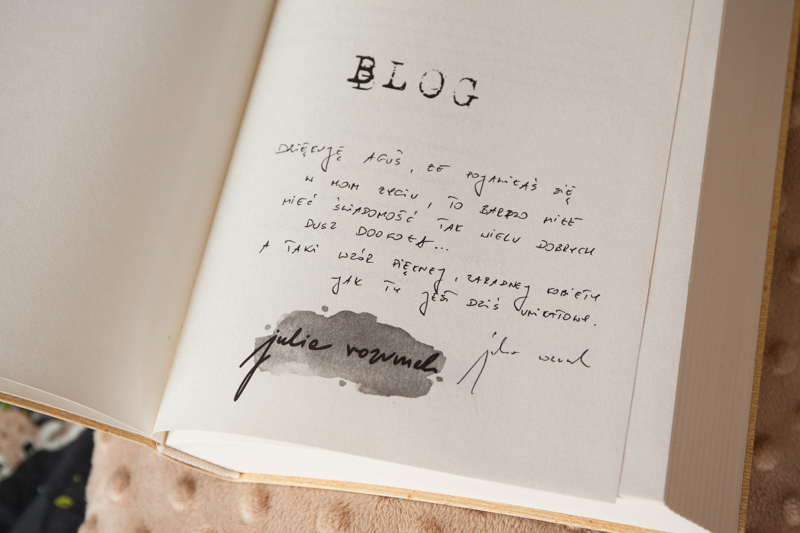 BLOG
DZIĘKUJĘ AGUŚ, ŻE POJAWIŁAŚ SIĘ
W MOIM ŻYCIU, TO BARDZO MIŁE
MIEĆ ŚWIADOMOŚĆ TAK WIELU DOBRYCH
DUSZ DOOKOŁA...
A TAKI WZÓR PIĘKNEJ, ZARADNEJ KOBIETY
JAK TY JEST DZIŚ UNIKATOWY.
julia rozumek